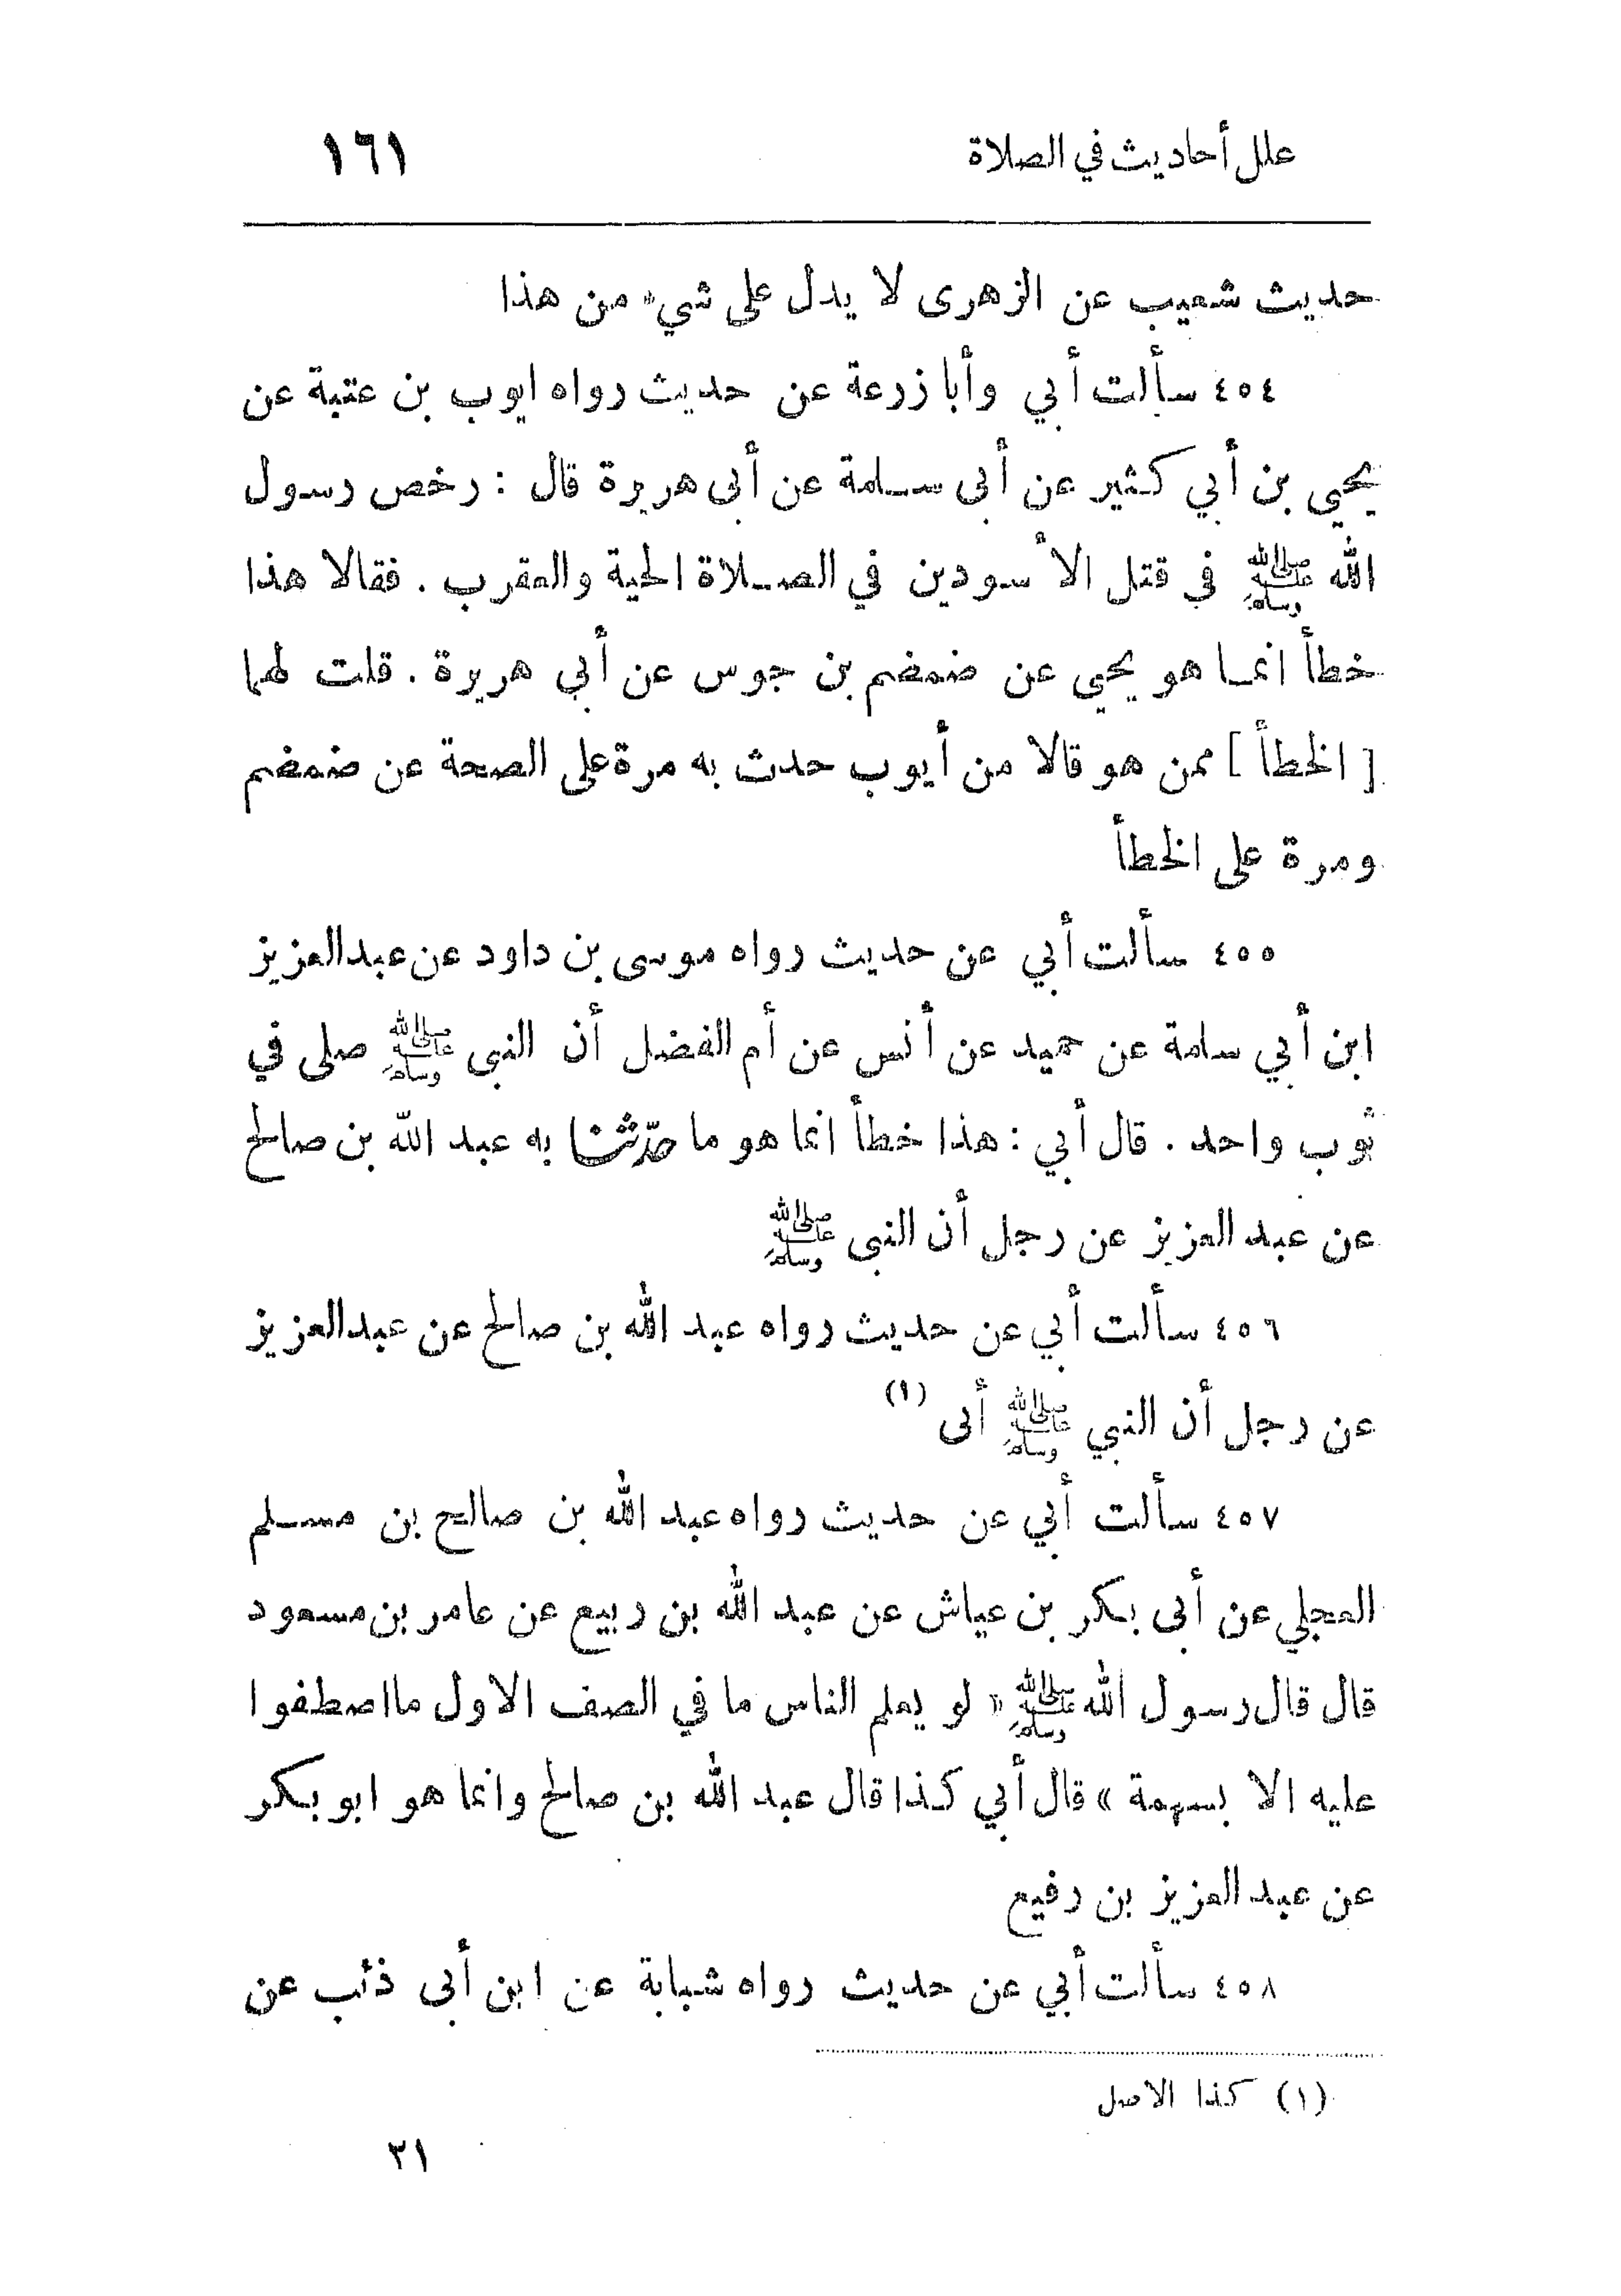 علل أحاديث في الصلاة ١٦١
حديث شعيب عن الزهرى لا يدل على شيء من هذا
٤٥٤ سألت أبي وأبا زرعة عن حديث رواه ايوب بن عتبة عن
يحيى بن أبي كثير عن أبى سلمة عن أبى هريرة قال : رخص رسول
الله ﷺ في قتل الأسودين في الصلاة الحية والعقرب . فقالا هذا
خطأ انما هو يحيى عن ضمضم بن جوس عن أبي هريرة . قلت لهما
[ الخطأ ] ممن هو قالا من أيوب حدث به مرة على الصحة عن ضمضم
ومرة على الخطأ
٤٥٥ سألت أبي عن حديث رواه موسى بن داود عن عبدالعزيز
ابن أبي سلمة عن حميد عن أنس عن أم الفضل أن النبى ﷺ صلى في
ثوب واحد . قال أبي : هذا خطأ انما هو ما حدّثنا به عبد الله بن صالح
عن عبد العزيز عن رجل أن النبى ﷺ
٤٥٦ سألت أبي عن حديث رواه عبد الله بن صالح عن عبدالعزيز
عن رجل أن النبي ﷺ أبى (١)
٤٥٧ سألت أبي عن حديث رواه عبد الله بن صالح بن مسلم
العجلي عن أبى بكر بن عياش عن عبد الله بن ربيع عن عامر بن مسعود
قال قال رسول الله ﷺ « لو يعلم الناس ما في الصف الاول مااصطفوا
عليه الا بسهمة » قال أبي كذا قال عبد الله بن صالح وانما هو ابو بكر
عن عبد العزيز بن رفيع
٤٥٨ سألت أبي عن حديث رواه شبابة عن ابن أبى ذئب عن
(١) كذا الاصل
٢١